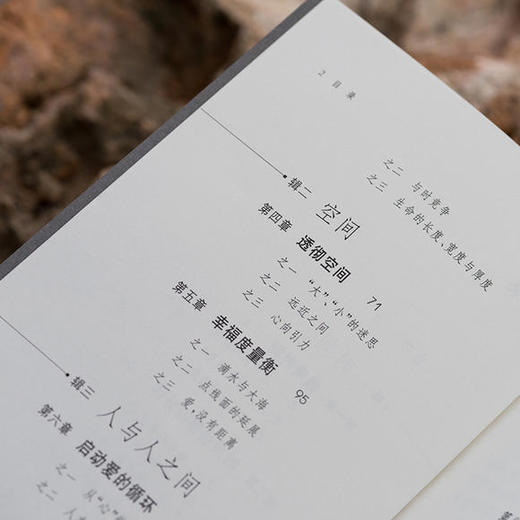 2 目录
之二 与时竞争
之三 生命的长度、宽度与厚度
辑二 空间
第四章 透彻空间 71
之一 “大”、“小”的迷思
之二 远近之间
之三 心向引力
第五章 幸福度量衡 95
之一 滴水与大海
之二 点线面的延展
之三 爱,没有距离
辑三 人与人之间
第六章 启动爱的循环
之一 从“心”
之二 人